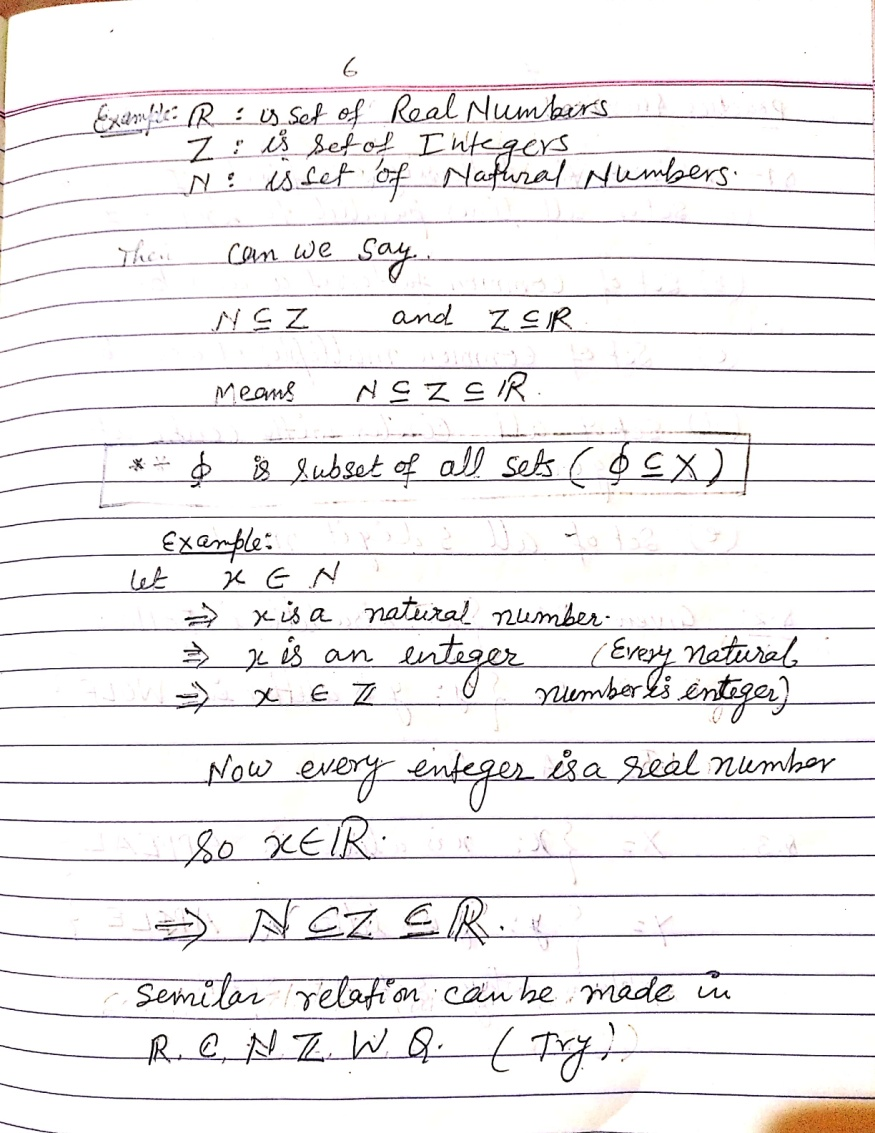 6
Example: ℝ : is set of Real Numbers
Z : is set of Integers
N : is set of Natural Numbers.
Then can we say..
N ⊆ Z and Z ⊆ ℝ
Means N ⊆ Z ⊆ ℝ.
** ϕ is subset of all sets ( ϕ ⊆ X )
Example:
let x ∈ N
⇒ x is a natural number.
⇒ x is an integer (Every natural
⇒ x ∈ ℤ number is integer)
Now every integer is a real number
So x ∈ ℝ.
⇒ ℕ ⊆ ℤ ⊆ ℝ.
Similar relation can be made in
ℝ, ℂ, ℕ, ℤ, W, Q. (Try)